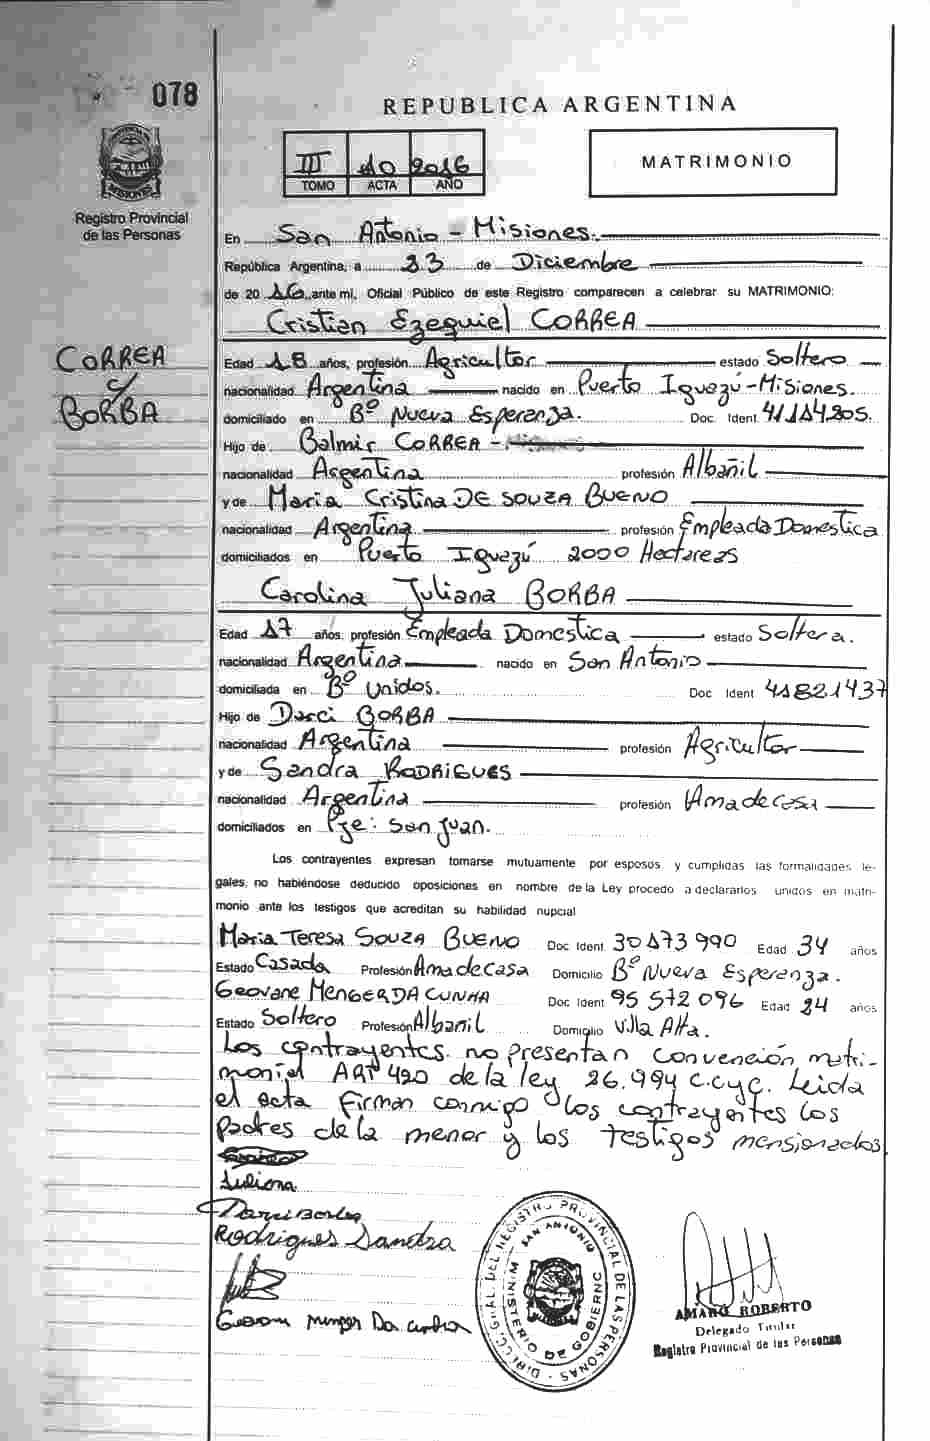 078
REPUBLICA ARGENTINA
III 10 2016
TOMO ACTA AÑO
MATRIMONIO
MISIONES
Registro Provincial
de las Personas
En San Antonio - Misiones.
República Argentina, a 23 de Diciembre
de 20 16 ante mi, Oficial Público de este Registro comparecen a celebrar su MATRIMONIO:
Cristian Ezequiel CORREA
CORREA
c/
BORBA
Edad 18 años, profesión Agricultor estado Soltero
nacionalidad Argentina nacido en Puerto Iguazú - Misiones.
domiciliado en Bº Nueva Esperanza. Doc. Ident 41114205.
Hijo de Balmir CORREA -
nacionalidad Argentina profesión Albañil
y de Maria Cristina DE SOUZA BUENO
nacionalidad Argentina profesión Empleada Domestica
domiciliados en Puerto Iguazú 2000 Hectareas
Carolina Juliana BORBA
Edad 17 años, profesión Empleada Domestica estado Soltera.
nacionalidad Argentina nacido en San Antonio
domiciliada en Bº Unidos. Doc Ident 41821437
Hijo de Darci BORBA
nacionalidad Argentina profesión Agricultor
y de Sandra RODRIGUES
nacionalidad Argentina profesión Ama de Casa
domiciliados en Pje: San Juan.
Los contrayentes expresan tomarse mutuamente por esposos y cumplidas las formalidades le-
gales, no habiéndose deducido oposiciones en nombre de la Ley procedo a declararlos unidos en matri-
monio ante los testigos que acreditan su habilidad nupcial
Maria Teresa SOUZA BUENO Doc Ident 30173990 Edad 34 años
Estado Casada Profesión Ama de Casa Domicilio Bº Nueva Esperanza.
Geovane MENGER DA CUNHA Doc Ident 95572096 Edad 24 años
Estado Soltero Profesión Albañil Domicilio Villa Alta.
Los contrayentes no presentan convención matri-
monial ARt 420 de la ley 26.994 C.C y C. Leida
el acta firman conmigo los contrayentes los
padres de la menor y los testigos mensionados
Juliana
Darci Borba
Rodrigues Sandra
Geovane Menger Da cunha
DIRECC. GRAL. DEL REGISTRO PROVINCIAL DE LAS PERSONAS
SAN ANTONIO
MINISTERIO DE GOBIERNO
AMARO ROBERTO
Delegado Titular
Registro Provincial de las Personas